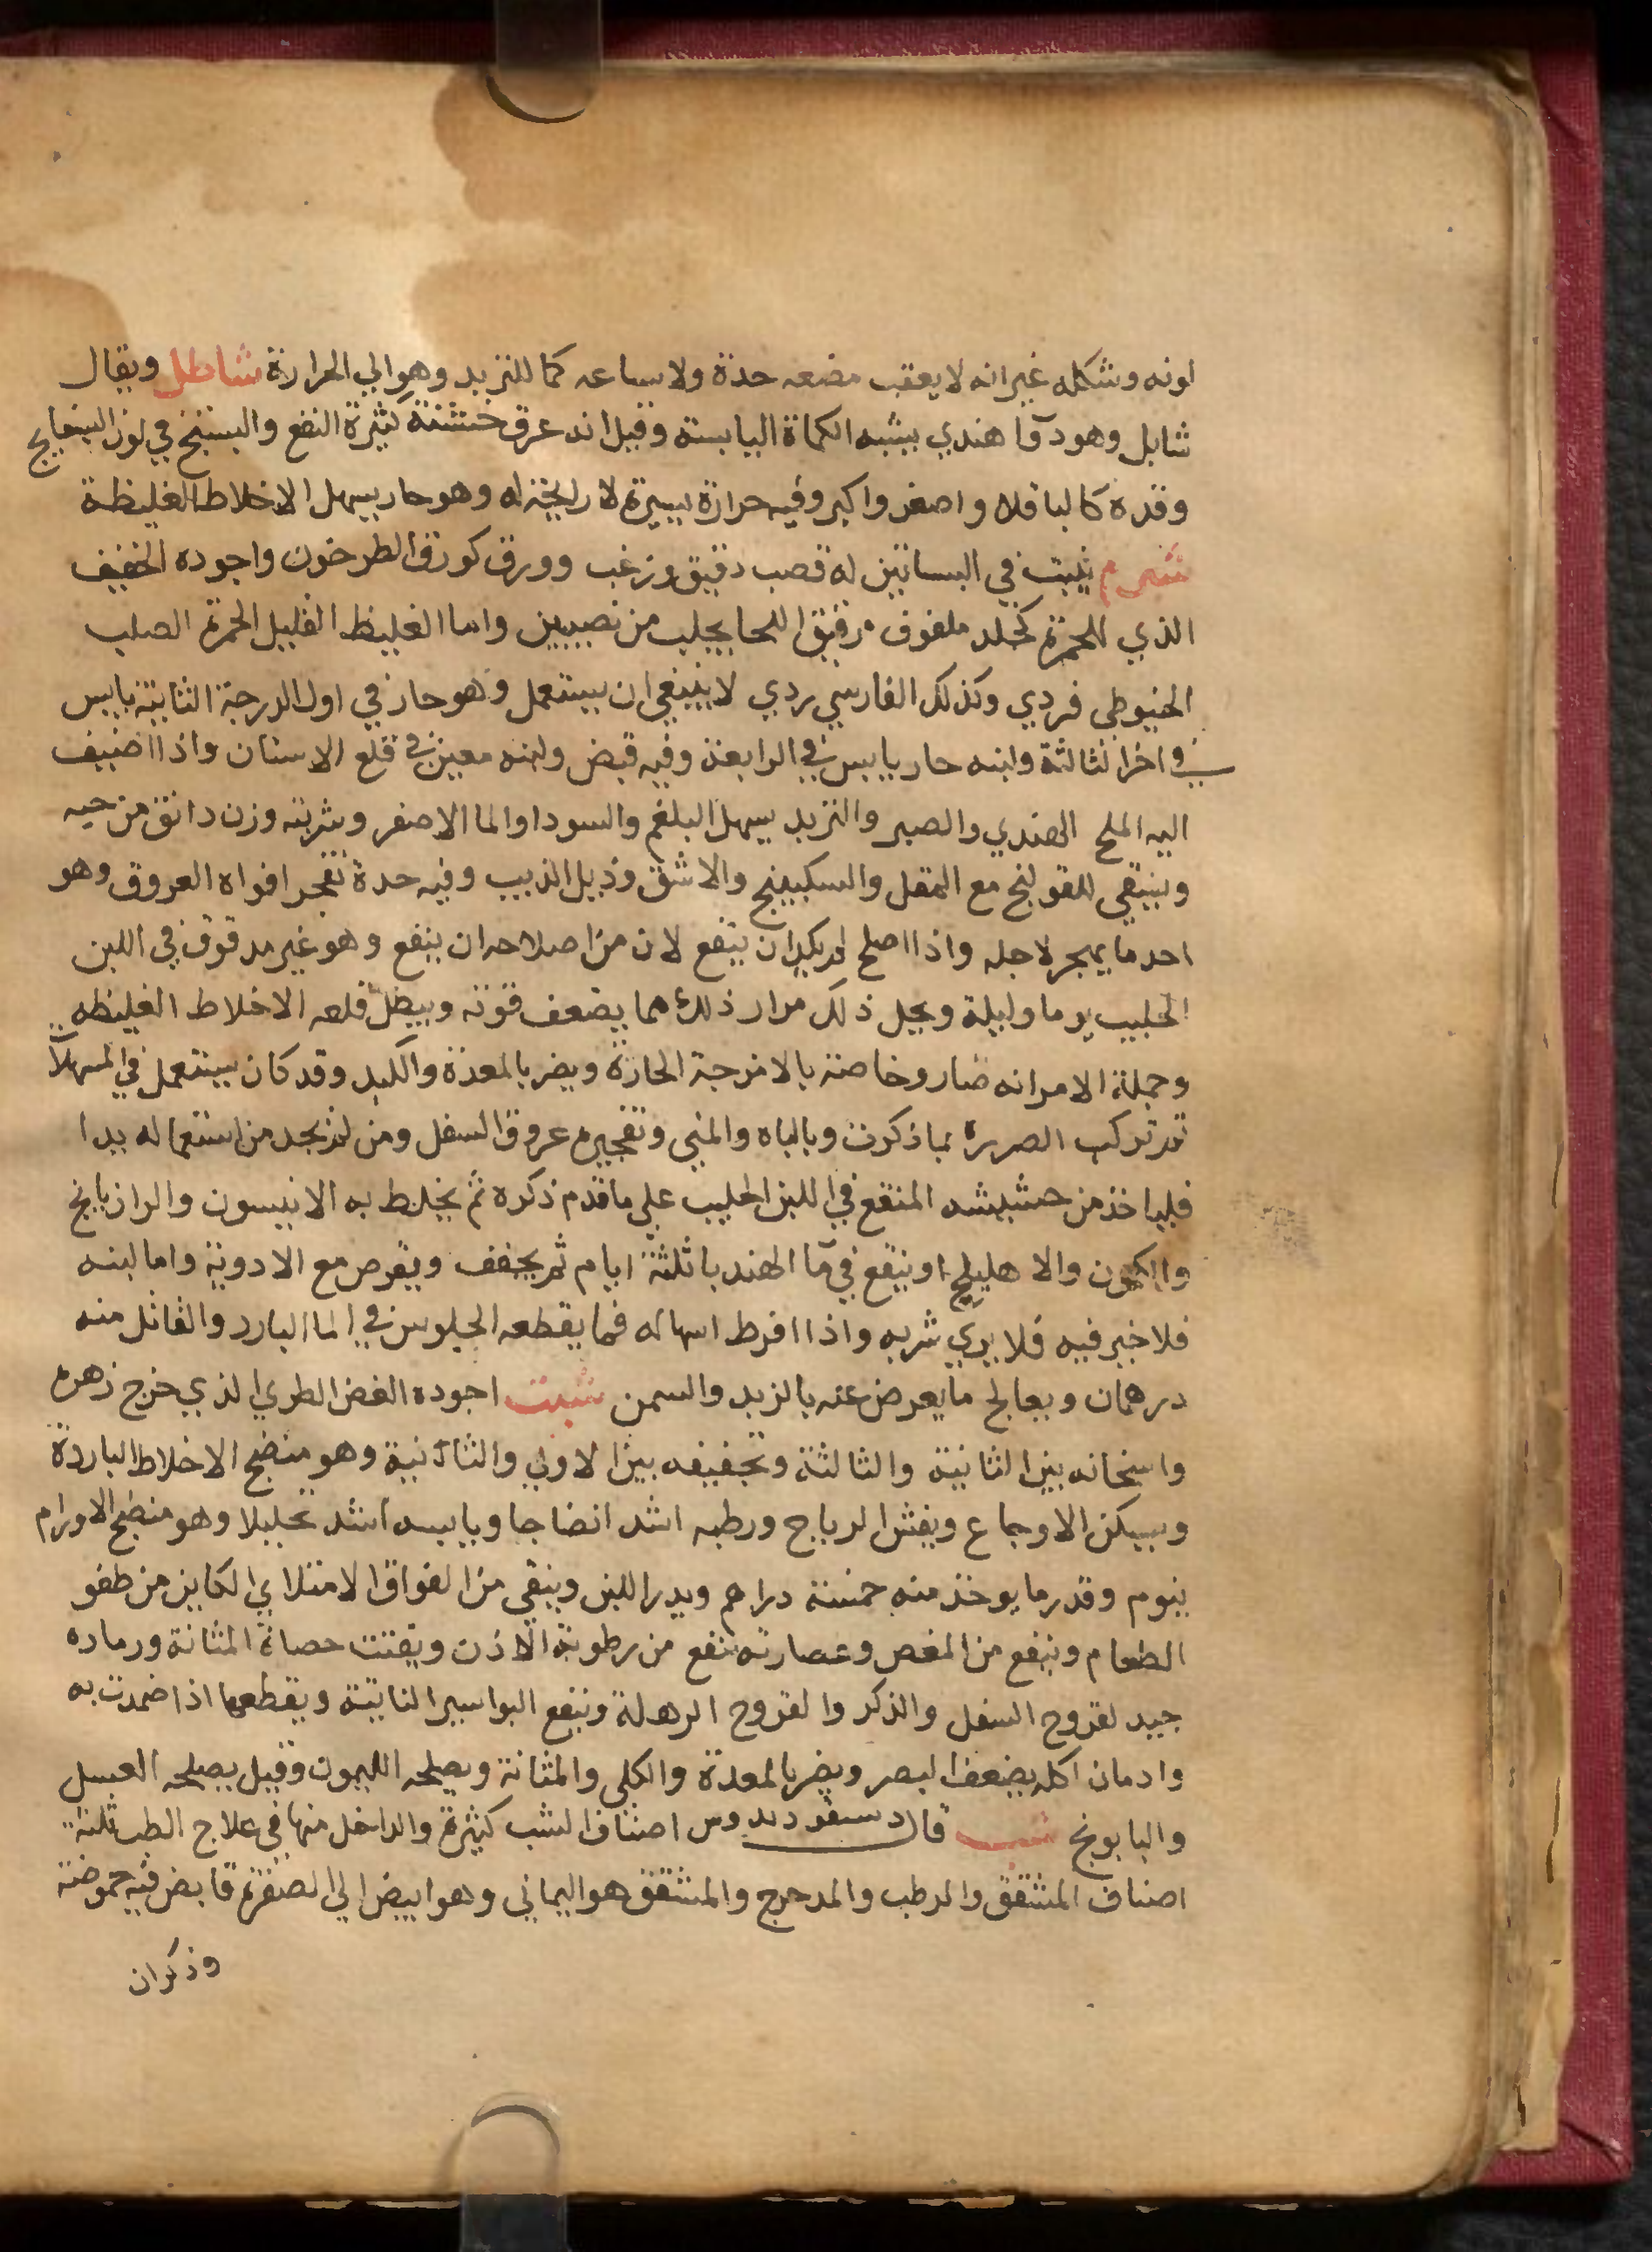 لونه وشكله غير انه لا يعقب مضغه حدة ولا ساعه كما للتربد وهو الي الحرارة شاطل ويقال
شابل وهو دوا هندي يشبه الكماة اليابسة وقيل انه عرق خشنة كثيرة النفع والبستج في لون البنفايج
وقدره كالباقلا واصغر واكبر وفيه حرارة يسيرة لا رايحة له وهو حار يسهل الاخلاط الغليظة
شبرم ينبت في البساتين له قصب دقيق وزغب وورق كورق الطرخون واجوده الخفيف
الذي للحمرة كجلد ملفوف رقيق اللحا يجلب من نصيبين واما الغليظ القليل الحمرة الصلب
الخيوطي فردي وكذلك الفارسي ردي لا ينبغي ان يستعمل وهو حار في اول الدرجة الثانية يابس
في اخر الثالثة ولبنه حار يابس في الرابعة وفيه قبض ولبنه معين في قلع الاسنان واذا اضيف
اليه الملح الهندي والصبر والتربد يسهل البلغم والسودا والما الاصفر وشربته وزن دانق من حبه
وينبقي للقولنج مع المقل والسكبينج والاشق وذبل الذيب وفيه حدة تفجر افواه العروق وهو
احد ما يهجر لاجله واذا اصلح لم يكد ان ينفع لان من اصلاحه ان ينقع وهو غير مدقوق في اللبن
الحليب يوما وليلة ويجل ذلك مرار ذلك مما يضعف قوته ويبطل قلعه الاخلاط الغليظه
وجملة الامر انه ضار وخاصة بالامزجة الحارة ويضر بالمعدة والكبد وقد كان يستعمل في المسهلات
ثم ترك الضرره بما ذكرت وبالباه والمني وتفجيره عروق السفل ومن لم يجد من استعماله بدا
فلياخذ من حشيشه المنقع في اللبن الحليب علي ما قدم ذكره ثم يخلط به الانيسون والرازيانج
والكمون والاهليلج او ينقع في ما الهندبا ثلثة ايام ثم يجفف ويقرص مع الادوية واما لبنه
فلا خير فيه فلا يري شربه واذا افرط اسهاله فما يقطعه الجلوس في الما البارد والقاتل منه
درهمان ويعالج ما يعرض عنه بالزبد والسمن شبت اجوده الغض الطري الذي خرج زهره
واسخانه بين الثانية والثالثة وتجفيفه بين الاولي والثانية وهو منضج الاخلاط الباردة
ويسكن الاوجاع ويفش الرياح ورطبه اشد انضاجا ويابسه اشد تحليلا وهو منضج الاورام
ينوم وقدر ما يوخذ منه خمسة دراهم ويدر اللبن وينقي من الفواق الامتلاي الكاين من طفو
الطعام وينفع من المغص وعصارته تنفع من رطوبة الاذن ويفتت حصاة المثانة ورماده
جيد لقروح السفل والذكر والقروح الرهلة وينفع البواسير الناتية ويقطعها اذا ضمدت به
وادمان اكله يضعف البصر ويضر بالمعدة والكلي والمثانة ويصلحه الليمون وقيل يصلحه العسل
والبابونج شب قال دسقوريدوس اصناف الشب كثيرة والداخل منها في علاج الطب ثلثة
اصناف المشقق والرطب والمدحرج والمشقق هو اليماني وهو ابيض الي الصفرة قابض فيه حموضة
وذكر ان